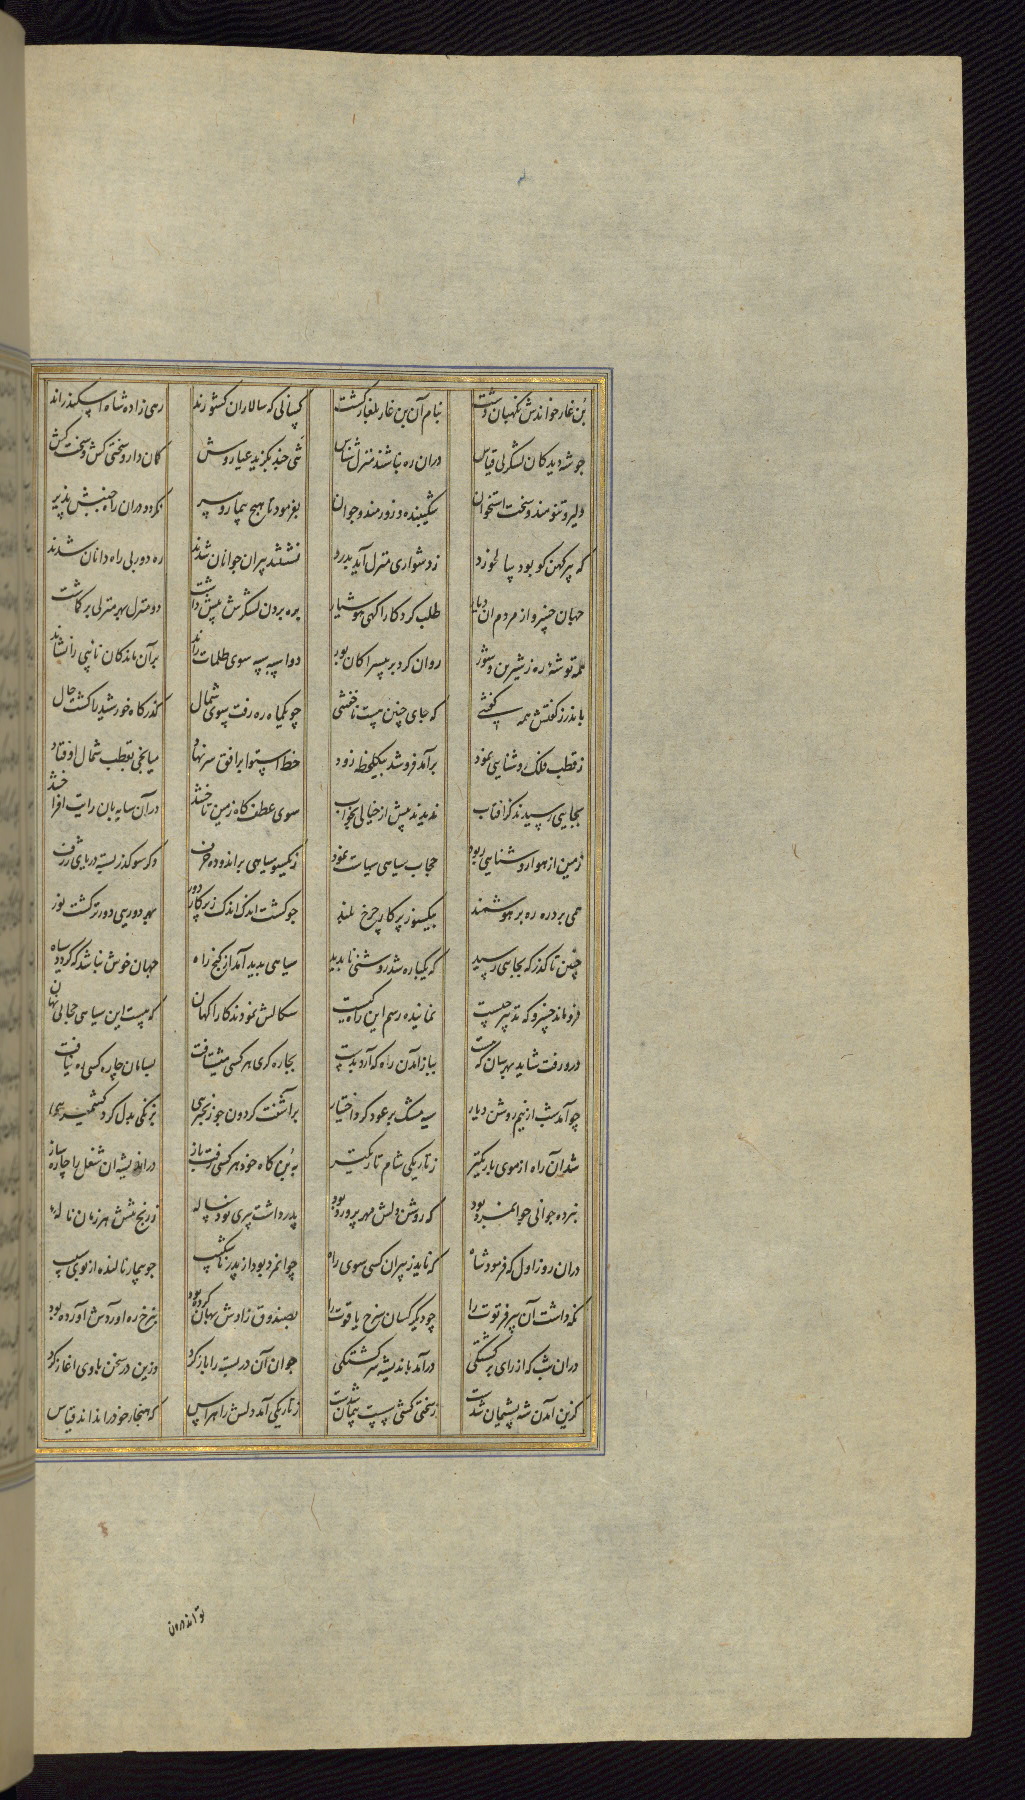 بن غار خواندش نگهبان دشت بنام آن بن غار بلغار گشت کسانی که سالاران کشورند رهی زاده شاه اسکندراند
چو شه دید کان لشکر بی قیاس دران ره نباشند منزل شناس تنی چند بگزید عیاروش کمان دار و سختی کش و سخت کش
دلیر و تنومند و سخت استخوان شکیبنده و زورمند و جوان بفرمود تا هیچ بیمار و پیر نگردد دران راه جنبش پذیر
که پیر کهن کو بود پا لغزد ز دشواری منزل آید بدرد نشستند پیران جوانان شدند ره دور بی راه دانان شدند
جهان خسرو از مردم آن دیار طلب کرد کار آگهی هوشیار بره بردن لشکرش پیش داشت دو منزل بهر منزلی بر گماشت
همه توشه ره ز شیرین و شور روان کرد بر بیسراکان بور دو اسبه سپه سوی ظلمات راند بر آن ماندگان نایبی را نشاند
باندرز گفتش همه گفتنی که جای چنین نیست ناخفتنی چو یکماه ره رفت سوی شمال گذرگاه خورشید را گشت حال
ز قطب فلک روشنایی نمود برآمد فرو شد بیکلحظه زود خط استوا بر افق سر نهاد میانجی بقطب شمال اوفتاد
بجایی رسیدند کز آفتاب ندیدند پیش از خیالی بخواب سوی عطف گاه زمین تاختند در آن سایه بان رایت افراختند
زمین از هوا روشنایی ربود حجاب سیاهی سیاست نمود ز یکسو سیاهی بر اندوده حرف دگر سو گذر بسته دریای ژرف
همی برد ره رهبر هوشمند بیکسو ز پرگار چرخ بلند چو گشت اندک اندک ز پرگار دور بهر دوریی دورتر گشت نور
چنین تا گذرگه بجایی رسید که یکباره شد روشنی ناپدید سیاهی پدید آمد از کنج راه جهان خوش نباشد که گردد سیاه
فرو ماند خسرو که تدبیر چیست نماینده رسم این راه کیست سگالش نمودند کار آگهان که هست این سیاهی حجابی نهان
درو رفت شاید بهرسان که هست بباز آمدن ره که آرد بدست بچاره گری هر کسی میشتافت بسامان چاره کسی ره نیافت
چو آمد شب از نیم روشن دیار سیه مشک بر عود کرد اختیار برآشفت گردون چو زنگیی بزنگی بدل کرد کشمیریی
شد آن راه از موی باریکتر ز تاریکی شام تاریکتر به بن گاه خود هر کسی رفت باز در اندیشه آن شغل را چاره ساز
نبرده جوانی جوانمرد بود که روشن دلش مهر پرورد بود پدر داشت پیری نود ساله ز رنج تنش هر زمان ناله
دران روز اول که فرمود شاه که ناید ز پیران کسی سوی راه جوانمرد بود از پدر ناشکیب چو بیمار نالنده از بوی سیب
نگه داشت آن پیر فرتوت را چو دیگر کسان سرخ یاقوت را بصندوق زادش نهان کرده بود بنرخ ره آوردش آورده بود
دران شب که از رای برگشتگی درآمد باندیشه سرگشتگی جوان آن در بسته را باز کرد وزین در سخن با وی آغاز کرد
کزین آمدن شه پشیمان شدست ز سختی کشی سست پیمان شدست ز تاریکی آمد دلش را هراس که هنجار خود را نداند قیاس
تو اندرون